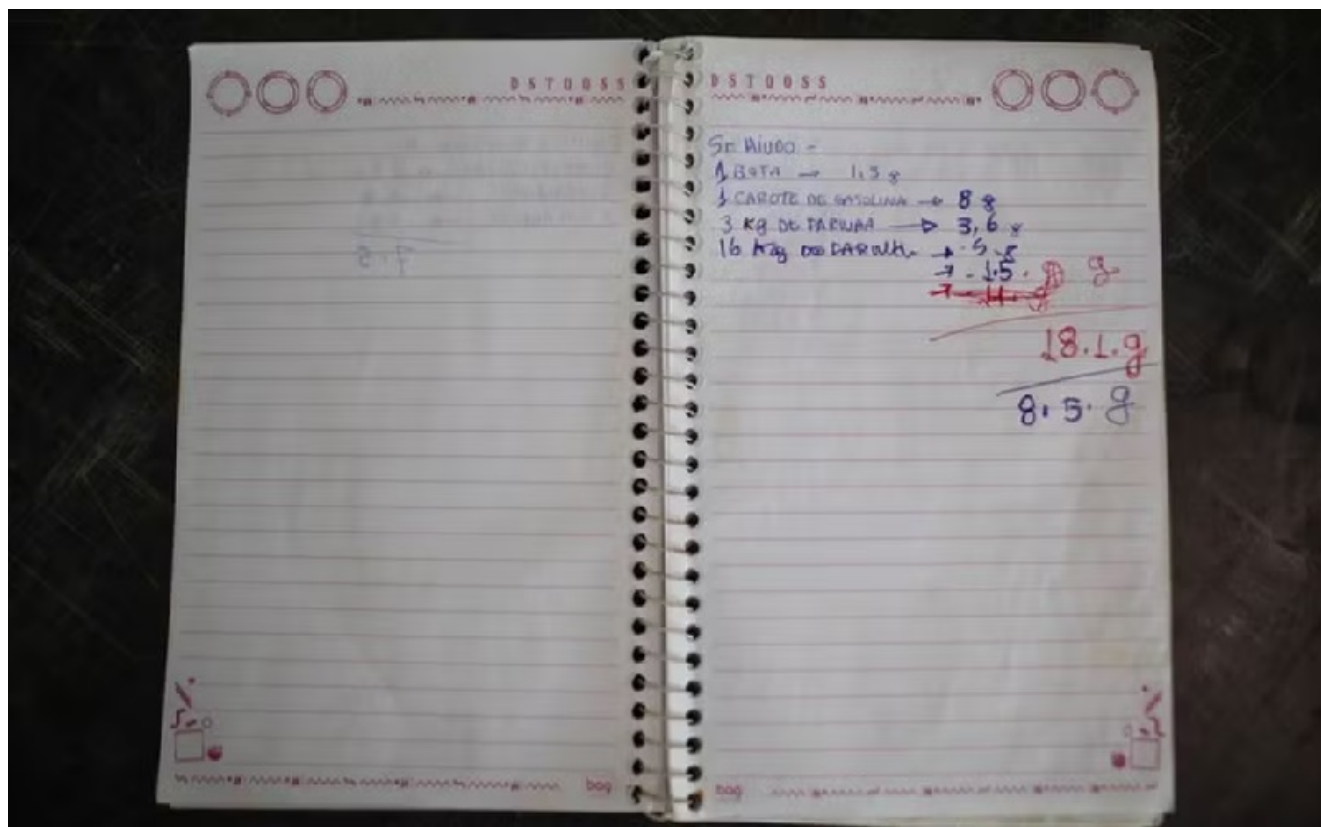 DSTOOSS
DSTOOSS
Sr. Miudo -
1 BOTA → 1.5 g
1 CAROTE DE GASOLINA → 8 g
3 Kg DE FARINHA → 3,6 g
16 Kg → .5 g
→ - 1.5. g
18.1.g
8.5.g
bag
bag